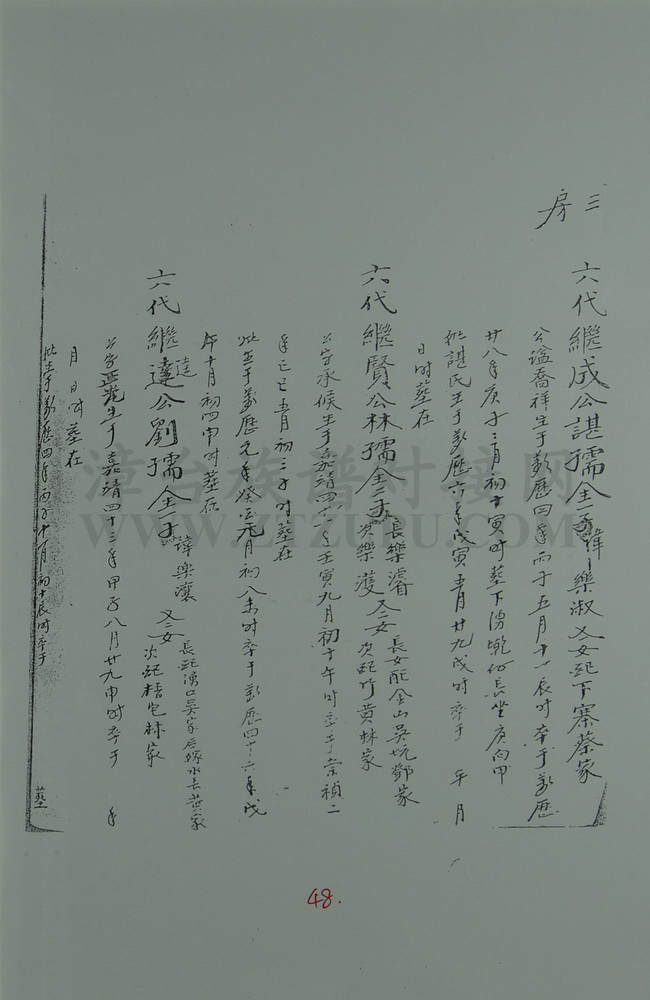 三房
六代繼成公諶孺仝一子諱樂淑 又女配下寨蔡家
公諡喬祥生于萬歷四年丙子五月十一辰时卒于萬歷
廿八年庚子二月初十寅时葬下湧 坐庚向甲
妣諶氏生于萬歷六年戊寅五月廿九戌时卒于 年 月
日时葬在
六代繼賢公林孺仝二子 長樂濬 次樂濩 又二女 長女配金山吳坑鄭家 次配竹黃林家
公字承候生于嘉靖四十一年壬寅九月初十午时卒于崇禎二
年己巳五月初二子时葬在
妣生于萬歷元年癸 元月初八未时卒于萬歷四十六年戊
午十月初四申时葬在
六代繼達公劉孺仝一子 諱樂瀼 又二女 長配湧口吳家后嫁水長黃家 次配梧宅林家
達
公字 生于嘉靖四十三年甲子八月廿九申时卒于 年
月 日 时葬在
妣生于萬歷四年丙子十一月初十辰时卒于 葬
48.
漳台族谱对接网
WWW.ZTZUPU.COM